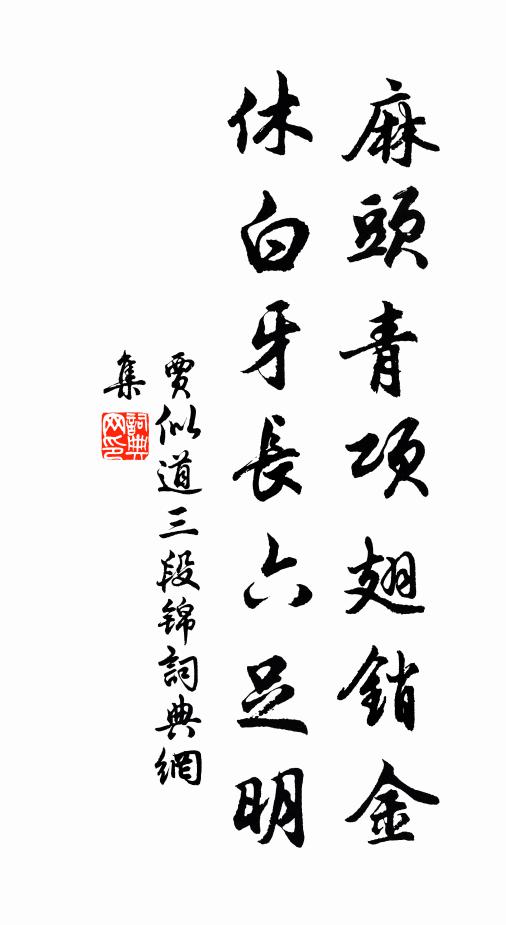 麻頭青項翅銷金
休白牙長六足明
賈似道三段錦詞典網
集
詞典
网印